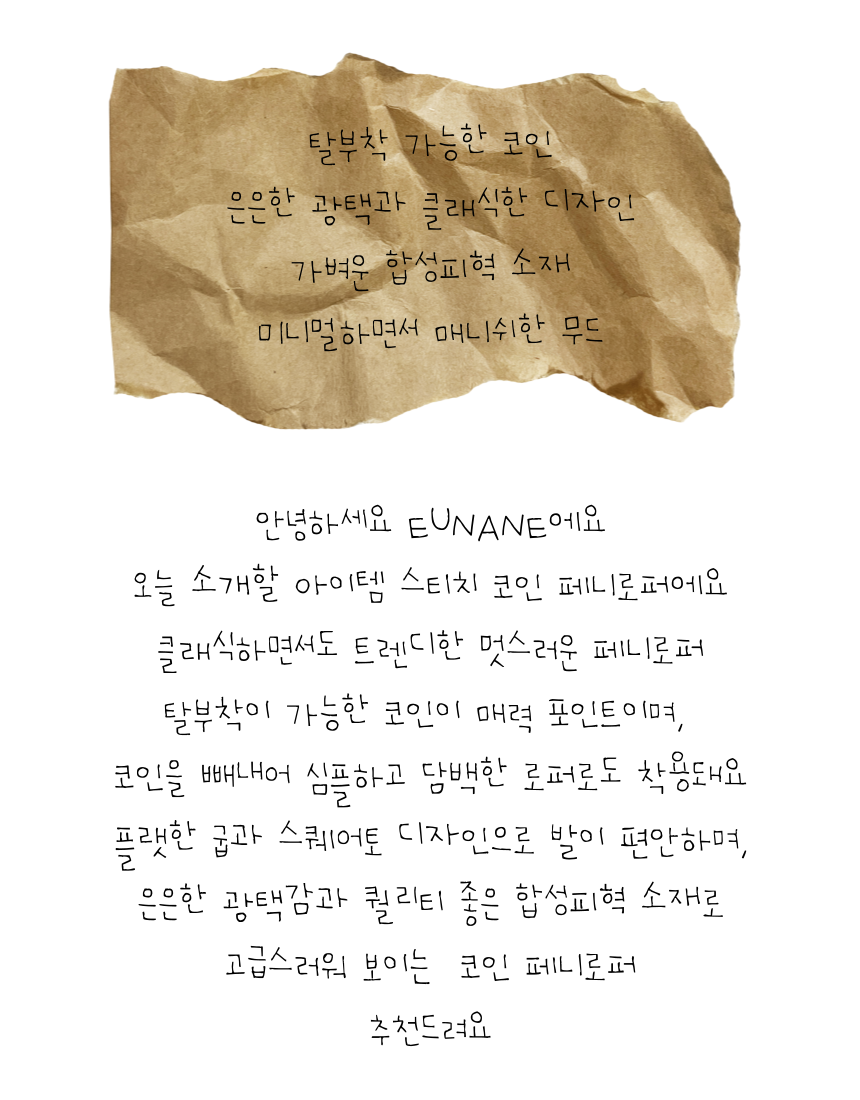 탈부착 가능한 코인
은은한 광택과 클래식한 디자인
가벼운 합성피혁 소재
미니멀하면서 매니쉬한 무드
안녕하세요 EUNANE에요
오늘 소개할 아이템 스티치 코인 페니로퍼에요
클래식하면서도 트렌디한 멋스러운 페니로퍼
탈부착이 가능한 코인이 매력 포인트이며,
코인을 빼내어 심플하고 담백한 로퍼로도 착용돼요
플랫한 굽과 스퀘어토 디자인으로 발이 편안하며,
은은한 광택감과 퀄리티 좋은 합성피혁 소재로
고급스러워 보이는 코인 페니로퍼
추천드려요